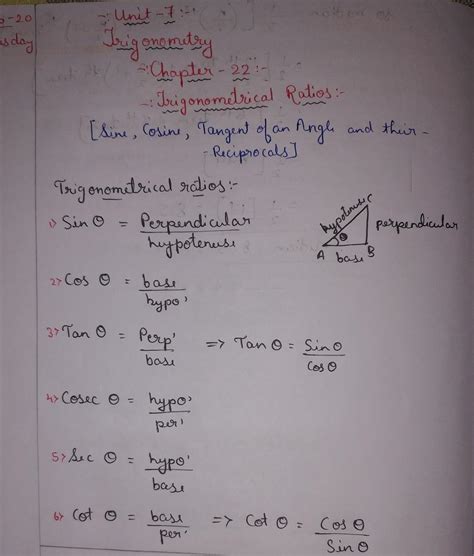 -20
sday
-: Unit - 7 :-
Trigonometry
-: Chapter - 22 :-
-: Trigonometrical Ratios :-
[Sine, Cosine, Tangent of an Angle and their -
- Reciprocals]
Trigonometrical ratios :-
1> Sin θ = Perpendicular / hypotenuse
hypotenuse
C
perpendicular
θ
A base B
2> Cos θ = base / hypo'
3> Tan θ = Perp' / base => Tan θ = Sin θ / Cos θ
4> Cosec θ = hypo' / per'
5> Sec θ = hypo' / base
6> Cot θ = base / per' => Cot θ = Cos θ / Sin θ